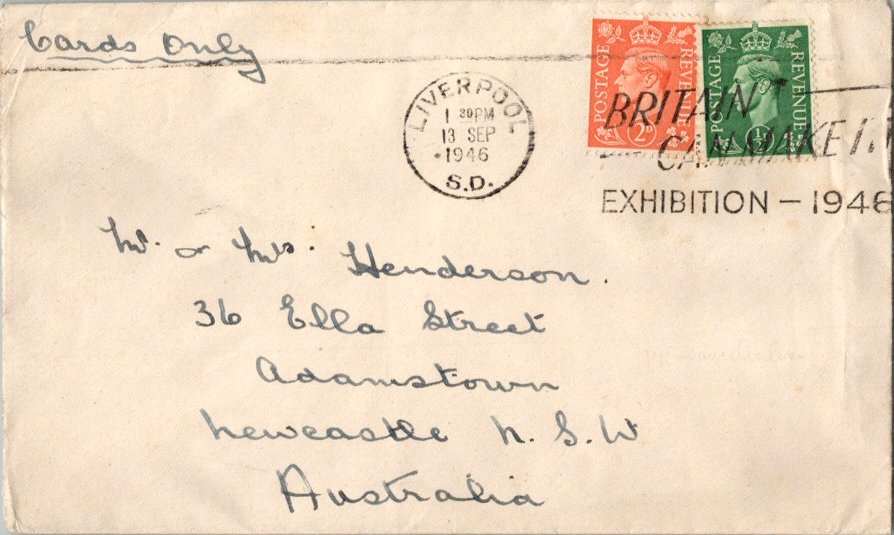 Cards Only
POSTAGE REVENUE 2D
POSTAGE REVENUE ½D
LIVERPOOL
1 30PM
13 SEP
1946
S.D.
BRITAIN
CAN MAKE IT
EXHIBITION - 1946
Mr. & Mrs. Henderson.
36 Ella Street
Adamstown
Newcastle N. S. W
Australia